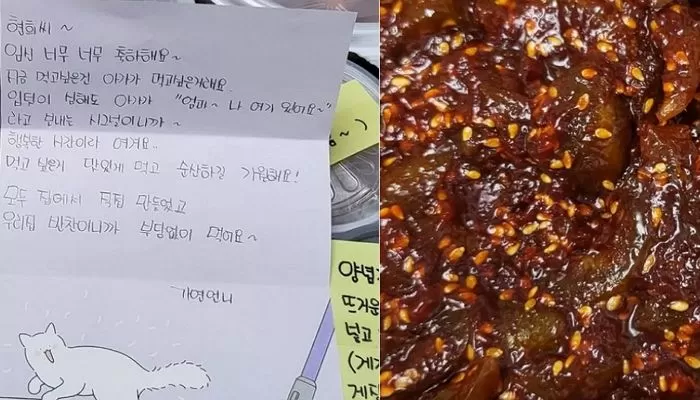 현희씨~
임신 너무 너무 축하해요~
지금 먹고싶은건 아가가 먹고싶은거래요.
입덧이 심해도 아가가 "엄마~ 나 여기 있어요~"
라고 보내는 시그널이니까~
행복한 시간이라 여겨요..
먹고 싶은거 맛있게 먹고 순산하길 기원해요!
모두 집에서 직접 만들었고
우리집 반찬이니까 부담없이 먹어요~
가연언니
양념
뜨거운
넣고
(게
게